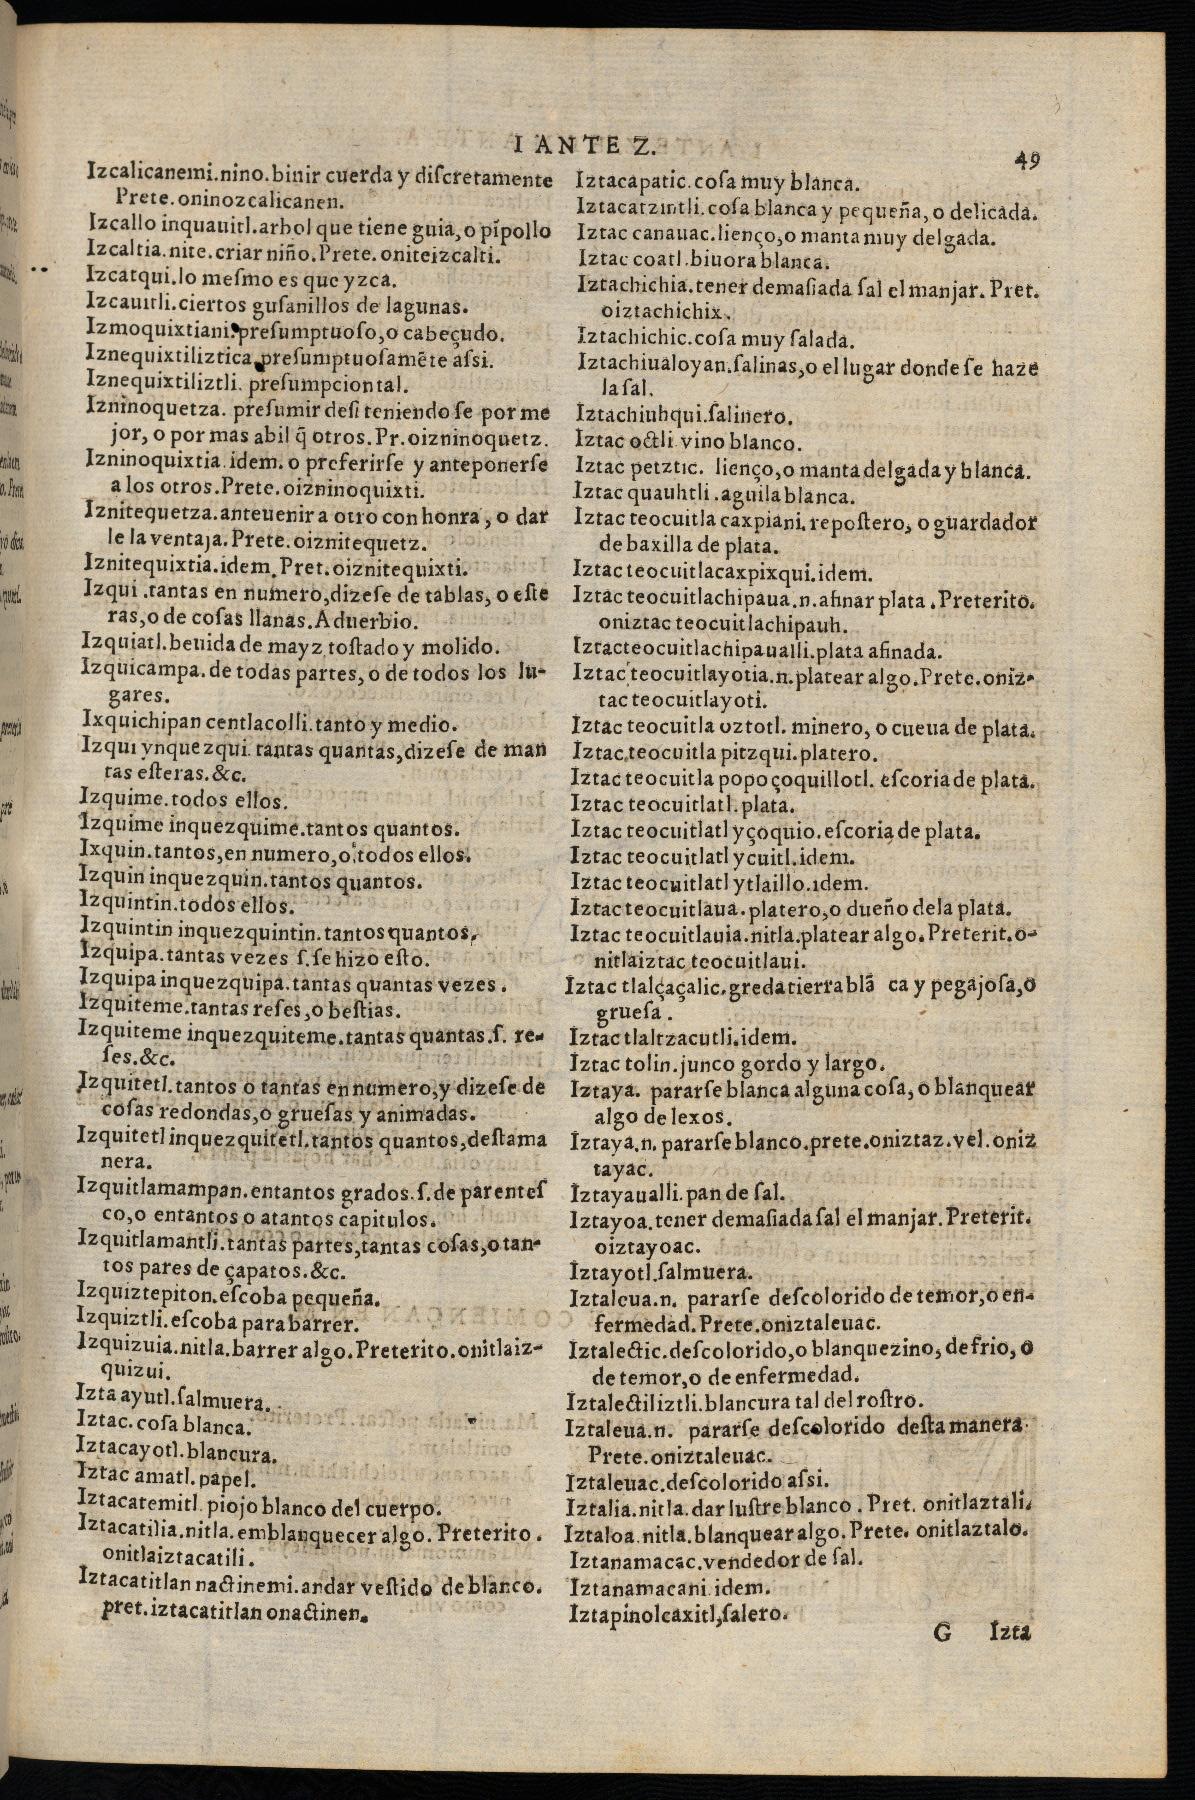 I ANTE Z.
49
Izcalicanemi.nino.biuir cuerda y discretamente
Prete.oninozcalicanen.
Izcallo inquauitl.arbol que tiene guia,o pĩpollo
Izcaltia.nite.criar niño.Prete.oniteizcalti.
Izcatqui.lo mesmo es que yzca.
Izcauitli.ciertos gusanillos de lagunas.
Izmoquixtiani.presumptuoso,o cabeçudo.
Iznequixtiliztica.presumptuosamẽte assi.
Iznequixtiliztli. presumpcion tal.
Izninoquetza. presumir desi teniendo se por me
jor, o por mas abil q̃ otros.Pr.oizninoquetz.
Izninoquixtia.idem.o preferirse y anteponerse
a los otros.Prete.oizninoquixti.
Iznitequetza.anteuenir a otro con honra, o dar
le la ventaja.Prete.oiznitequetz.
Iznitequixtia.idem.Pret.oiznitequixti.
Izqui.tantas en numero,dizese de tablas, o este
ras,o de cosas llanas.Aduerbio.
Izquiatl.beuida de mayz tostado y molido.
Izquicampa.de todas partes,o de todos los lu-
gares.
Ixquichipan centlacolli.tanto y medio.
Izqui ynquezqui.tantas quantas,dizese de man
tas esteras.&c.
Izquime.todos ellos.
Izquime inquezquime.tantos quantos.
Ixquin.tantos,en numero,o todos ellos.
Izquin inquezquin.tantos quantos.
Izquintin.todos ellos.
Izquintin inquezquintin.tantos quantos.
Izquipa.tantas vezes s.se hizo esto.
Izquipa inquezquipa.tantas quantas vezes.
Izquiteme.tantas reses,o bestias.
Izquiteme inquezquiteme.tantas quantas.s. re-
ses.&c.
Izquitetl.tantos o tantas en numero,y dizese de
cosas redondas,o gruesas y animadas.
Izquitetl inquezquitetl.tantos quantos,desta ma
nera.
Izquitlamampan.entantos grados.s.de parentes
co,o entantos o atantos capitulos.
Izquitlamantli.tantas partes,tantas cosas,o tan-
tos pares de çapatos.&c.
Izquiztepiton.escoba pequeña.
Izquiztli.escoba para barrer.
Izquizuia.nitla.barrer algo.Preterito.onitlaiz-
quizui.
Izta ayutl.salmuera.
Iztac.cosa blanca.
Iztacayotl.blancura.
Iztac amatl.papel.
Iztacatemitl.piojo blanco del cuerpo.
Iztacatilia.nitla.emblanquecer algo. Preterito.
onitlaiztacatili.
Iztacatitlan nactinemi.andar vestido de blanco.
pret.iztacatitlan onactinen.
Iztacapatic.cosa muy blanca.
Iztacatzintli.cosa blanca y pequeña, o delicada.
Iztac canauac.lienço,o manta muy delgada.
Iztac coatl.biuora blanca.
Iztachichia.tener demasiada sal el manjar. Pret.
oiztachichix.
Iztachichic.cosa muy salada.
Iztachiualoyan.salinas,o el lugar donde se haze
la sal.
Iztachiuhqui.salinero.
Iztac octli vino blanco.
Iztac petztic. lienço,o manta delgada y blanca.
Iztac quauhtli.aguila blanca.
Iztac teocuitla caxpiani.repostero, o guardador
de baxilla de plata.
Iztac teocuitlacaxpixqui.idem.
Iztac teocuitlachipaua.n.afinar plata.Preterito.
oniztac teocuitlachipauh.
Iztacteocuitlachipaualli.plata afinada.
Iztac teocuitlayotia.n.platear algo.Prete.oniz-
tac teocuitlayoti.
Iztac teocuitla oztotl. minero, o cueua de plata.
Iztac teocuitla pitzqui.platero.
Iztac teocuitla popoçoquillotl. escoria de plata.
Iztac teocuitlatl.plata.
Iztac teocuitlatl yçoquio.escoria de plata.
Iztac teocuitlatl ycuitl.idem.
Iztac teocuitlatl ytlaillo.idem.
Iztac teocuitlaua.platero,o dueño dela plata.
Iztac teocuitlauia.nitla.platear algo.Preterit.o-
nitlaiztac teocuitlaui.
Iztac tlalçaçalic.greda tierra blã ca y pegajosa,o
gruesa.
Iztac tlaltzacutli.idem.
Iztac tolin.junco gordo y largo.
Iztaya. pararse blanca alguna cosa, o blanquear
algo de lexos.
Iztaya.n.pararse blanco.prete.oniztaz.vel.oniz
tayac.
Iztayaualli.pan de sal.
Iztayoa.tener demasiada sal el manjar.Preterit.
oiztayoac.
Iztayotl.salmuera.
Iztaleua.n. pararse descolorido de temor,o en-
fermedad.Prete.oniztaleuac.
Iztalectic.descolorido,o blanquezino,de frio, o
de temor,o de enfermedad.
Iztalectiliztli.blancura tal del rostro.
Iztaleua.n. pararse descolorido desta manera
Prete.oniztaleuac.
Iztaleuac.descolorido assi.
Iztalia.nitla.dar lustre blanco. Pret. onitlaztali.
Iztaloa.nitla.blanquear algo.Prete. onitlaztalo.
Iztanamacac.vendedor de sal.
Iztanamacani idem.
Iztapinolcaxitl,salero.
G Izta